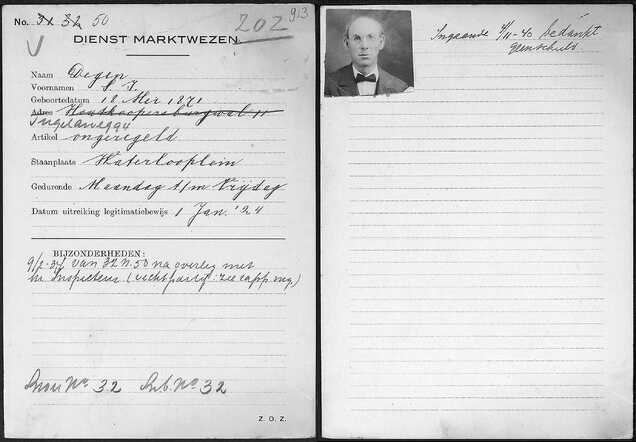 No. 31 32 50
202
913
V
DIENST MARKTWEZEN.
Naam Degen
Voornamen S. J.
Geboortedatum 18 Mei 1871
Adres Houtkoopersburgwal 11
Artikel ongeregeld
Staanplaats Waterlooplein
Gedurende Maandag t/m Vrijdag
Datum uitreiking legitimatiebewijs 1 Jan. '24
BIJZONDERHEDEN:
9/2-34 van 32 n. 50 na overleg met
hr Inspecteur (vechtpartij: zie rapp. mg.)
No. 32 No. 32
Z. O. Z.
Ingaande 4/11-40 bedankt
geen schuld